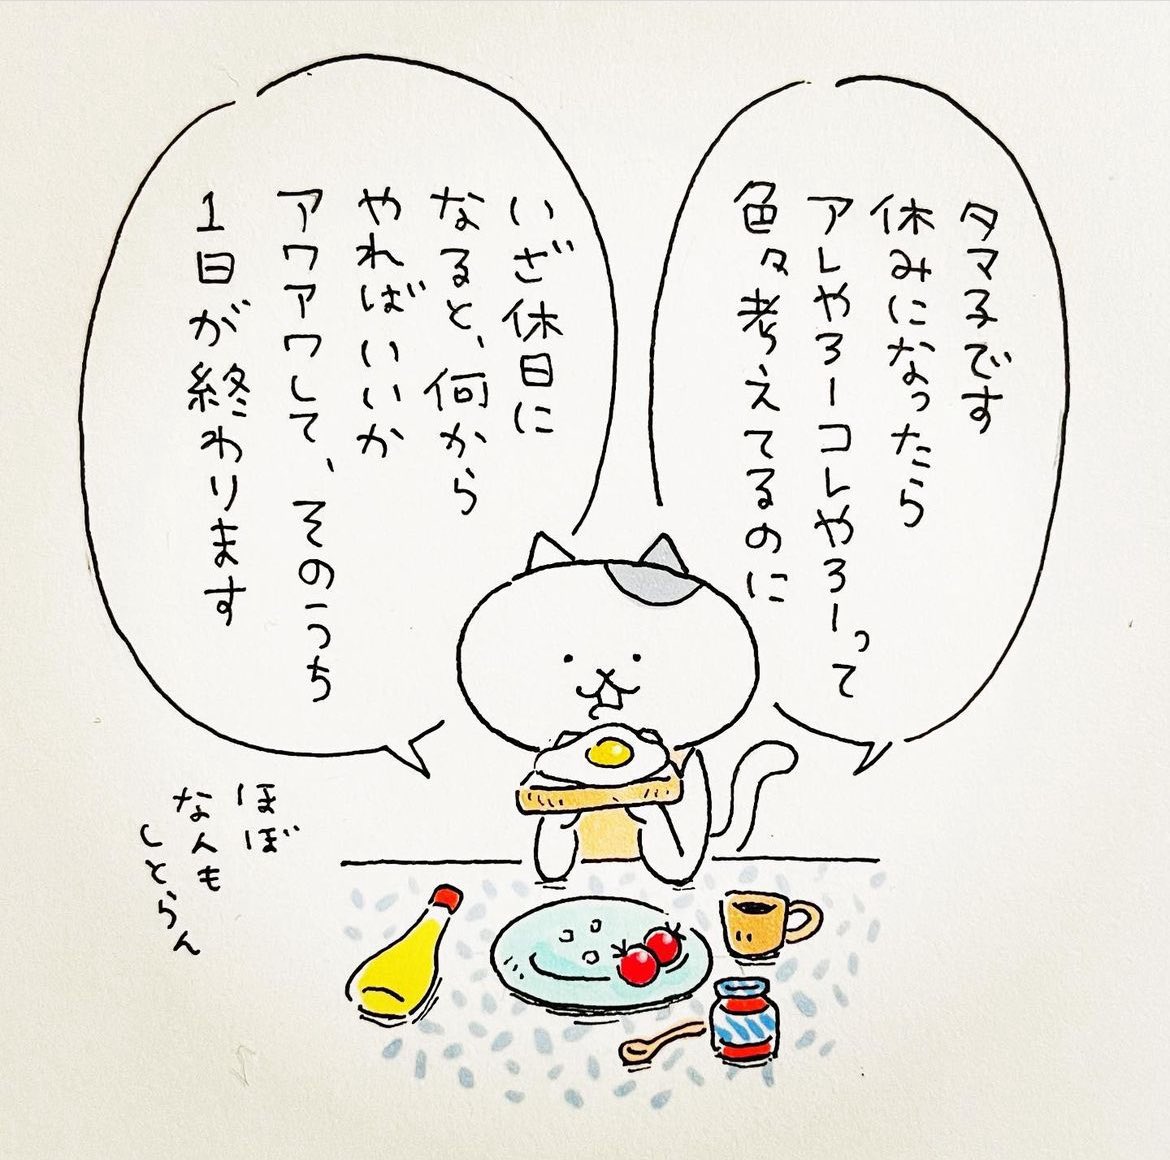 タマ子です
休みになったら
アレやろーコレやろーって
色々考えてるのに
いざ休日に
なると、何から
やればいいか
アワアワして、そのうち
1日が終わります
ほぼ
なんも
しとらん